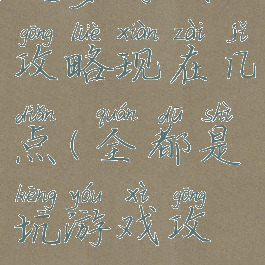 gōng lüè xiàn zài jǐ
攻略现在几
diǎn quán dū shì
点(全都是
kēng yóu xì gōng
坑游戏攻